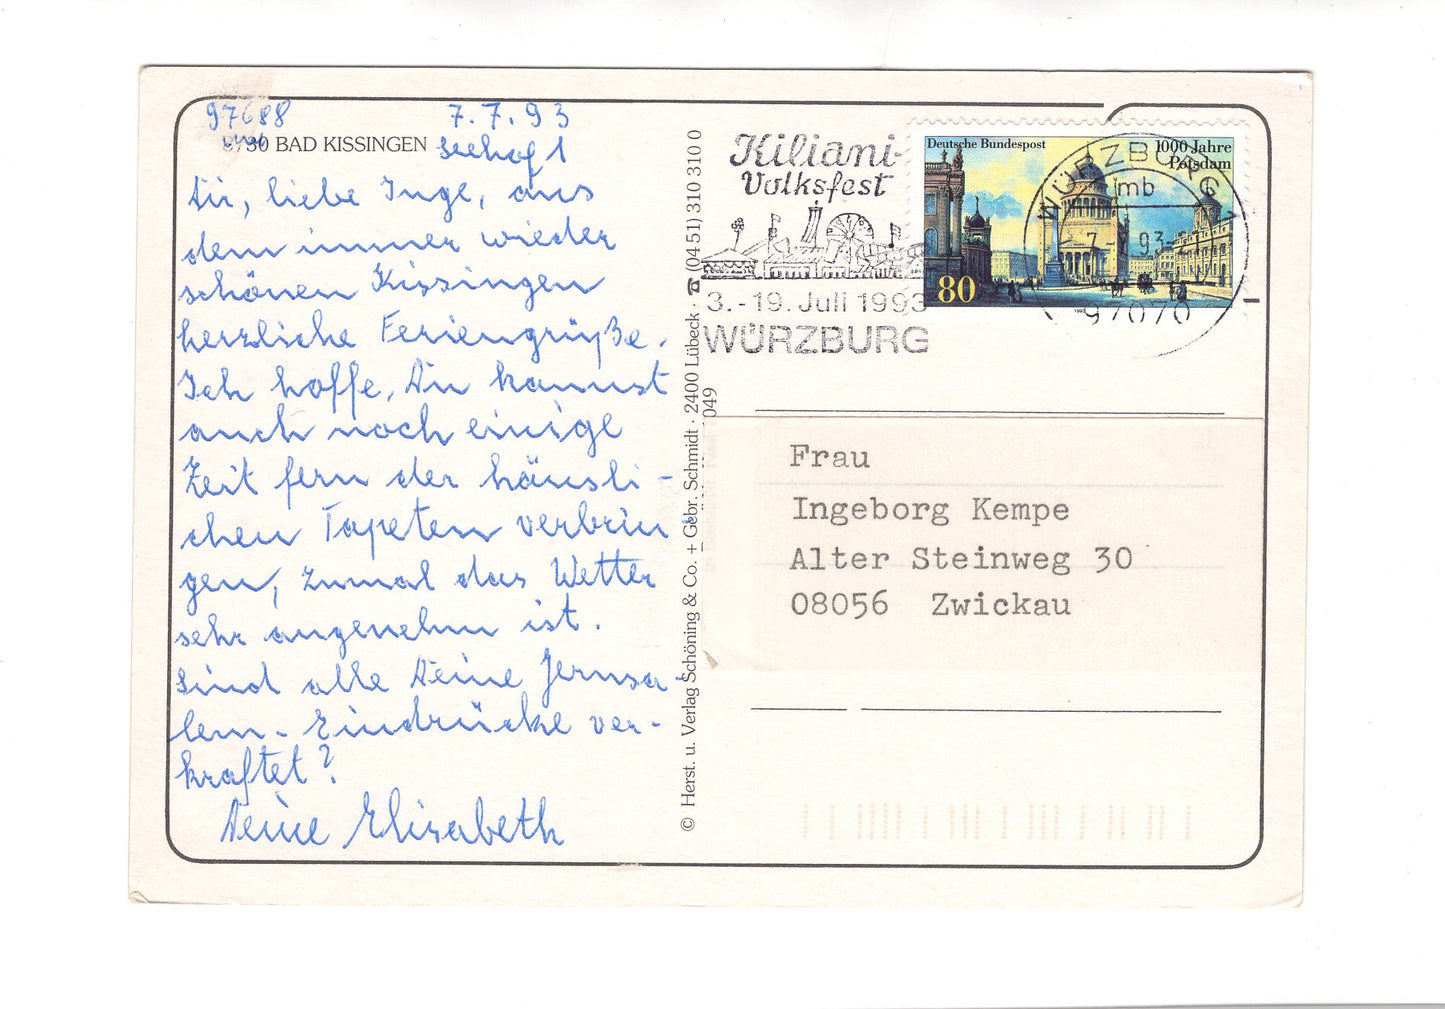 97688 7.7.93
8730 BAD KISSINGEN Seehof 1
Dir, liebe Inge, aus
dem immer wieder
schönen Kissingen
herzliche Feriengrüße.
Ich hoffe, Du kannst
auch noch einige
Zeit fern der häusli-
chen Tapeten verbrin-
gen, zumal das Wetter
sehr angenehm ist.
Sind alle Deine Jerusa-
lem-Eindrücke ver-
kraftet?
Deine Elisabeth
© Herst. u. Verlag Schöning & Co. + Gebr. Schmidt · 2400 Lübeck · ☎ (04 51) 310 310 0
049
Kiliani-
Volksfest
3.-19. Juli 1993
WÜRZBURG
Deutsche Bundespost
1000 Jahre
Potsdam
80
WÜRZBURG 1
mb
7. 93
97070
Frau
Ingeborg Kempe
Alter Steinweg 30
08056 Zwickau